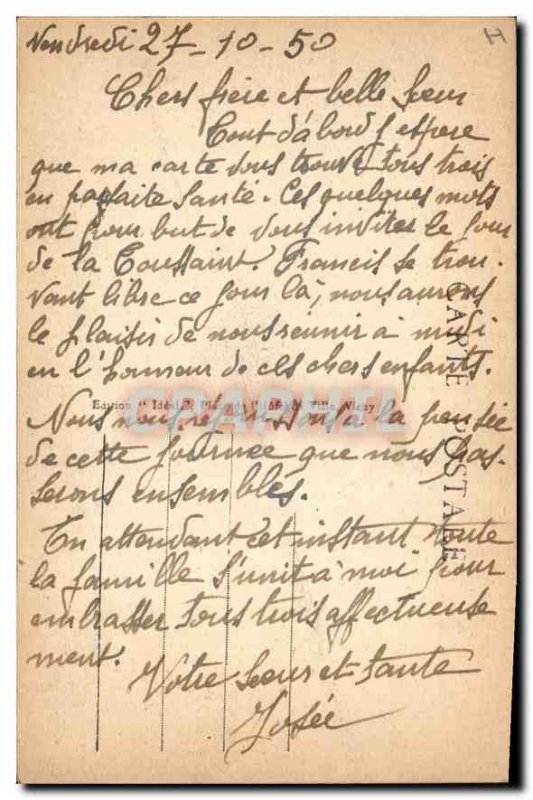 Vendredi 27-10-50
H
Chers frère et belle sœur
Tout d'abord j'espère
que ma carte vous trouve tous trois
en parfaite santé. Ces quelques mots
ont pour but de vous inviter le jour
de la Toussaint. Francis se trou-
vant libre ce jour là, nous aurons
le plaisir de nous reunir à midi
en l'honneur de ces chers enfants.
Edition "Idéal", Place de l'Hôtel de Ville, Vichy
Nous nous réjouissons à la pensée
de cette journée que nous pas-
serons ensembles.
En attendant cet instant toute
la famille s'unit à moi pour
embrasser tous trois affectueuse
ment.
Votre sœur et tante
Josée
CARTE POSTALE